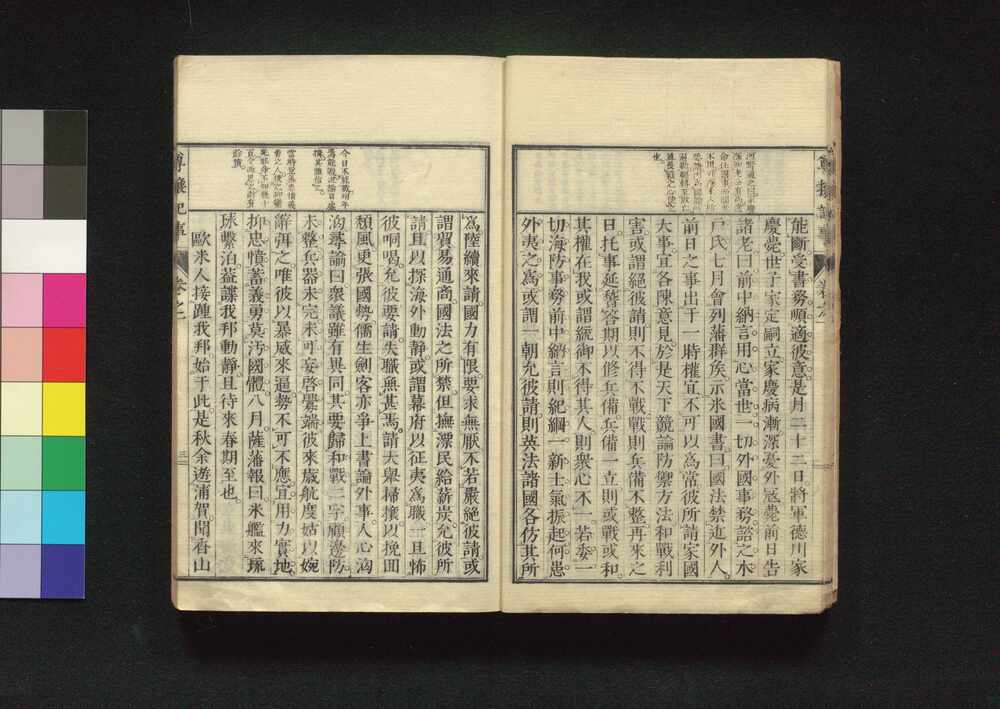 能斷受書務順適彼意是月二十二日將軍德川家
慶薨世子家定嗣立家慶病漸深憂外寇薨前日告
諸老曰前中納言用心當世一切外國事務諮之水
戶氏七月會列藩群侯示米國書曰國法禁近外人
前日之事出于一時權宜不可以為當彼所請家國
大事宜各陳意見於是天下競論防禦方法和戰利
害或謂絕彼請則不得不戰戰則兵備不整再來之
日托事延答期以修兵備兵備一立則或戰或和
其權在我或謂統御不得其人則衆心不一若委一
切海防事務前中納言則紀綱一新士氣振起何患
外夷之為或謂一朝允彼請則英法諸國各仿其所
為陸續來請國力有限要求無厭不若嚴絕彼請或
謂貿易通商國法之所禁但撫漂民給薪炭允彼所
請且以探海外動靜或謂幕府以征夷為職一旦怖
彼哃喝允彼要請失職無甚焉請大舉掃攘以挽回
頹風更張國勢儒生劍客亦爭上書論外事人心洶
洶幕論曰衆議雖有異同其要歸和戰二字顧邊防
未整兵器未完未可妄啓釁端彼來歲航度姑以婉
辭弭之唯彼以暴威來逼勢不可不應宜用力實地
抑忠憤蓄義勇莫汚國體八月薩藩報曰米艦來琉
球繫泊蓋諜我邦動靜且待來春期至也
歐米人接踵我邦始于此是秋余遊浦賀聞有山
今日不能戰明年
尊攘紀事
卷之一
三